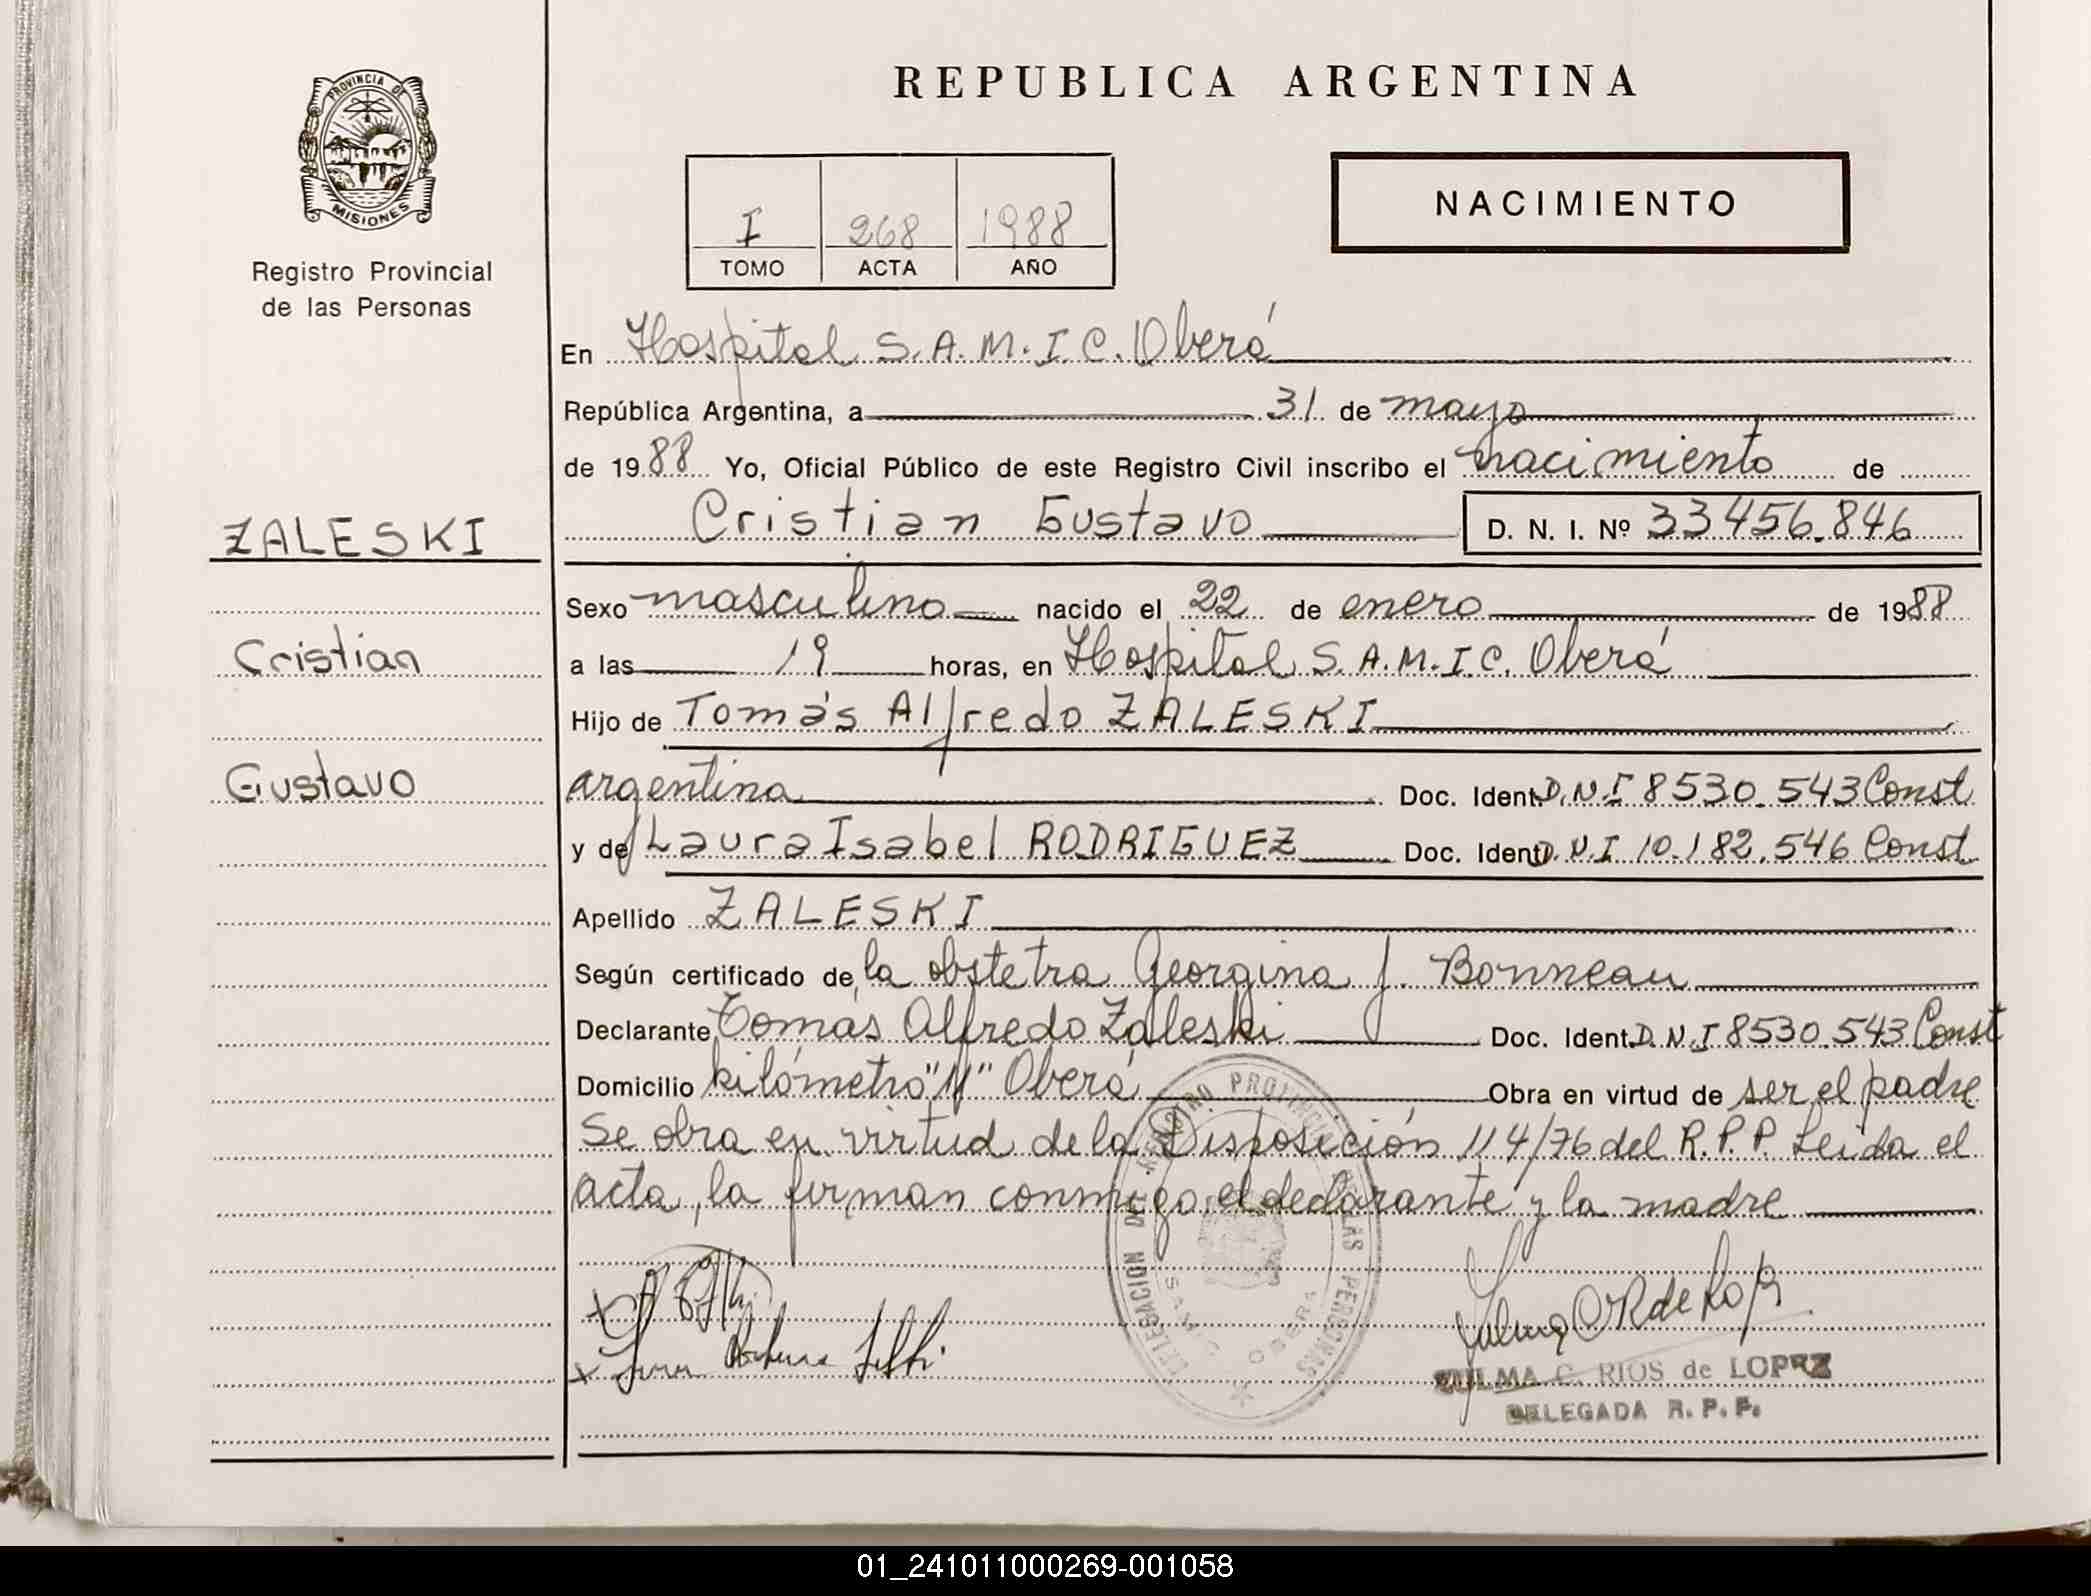 PROVINCIA DE
MISIONES
Registro Provincial
de las Personas
ZALESKI
Cristian
Gustavo
REPUBLICA ARGENTINA
I 268 1988
TOMO ACTA AÑO
NACIMIENTO
En Hospital S.A.M.I.C. Oberá
República Argentina, a 31 de mayo
de 1988 Yo, Oficial Público de este Registro Civil inscribo el nacimiento de
Cristian Gustavo D. N. I. Nº 33456.846
Sexo masculino nacido el 22 de enero de 1988
a las 19 horas, en Hospital S.A.M.I.C. Oberá
Hijo de Tomás Alfredo ZALESKI
argentina Doc. Ident. D.N.I 8530.543 Const
y de Laura Isabel RODRIGUEZ Doc. Ident. D.N.I 10.182.546 Const
Apellido ZALESKI
Según certificado de la obstetra Georgina J. Bonneau
Declarante Tomás Alfredo Zaleski Doc. Ident. D.N.I 8530.543 Const
Domicilio kilómetro "11" Oberá Obra en virtud de ser el padre
Se obra en virtud de la Disposición 114/76 del R.P.P. Leida el
acta, la firman conmigo, el declarante y la madre
DELEGACION DEL REGISTRO PROVINCIAL DE LAS PERSONAS
SAMIC OBERA
ZULMA C. RIOS de LOPEZ
DELEGADA R. P. P.
01_241011000269-001058